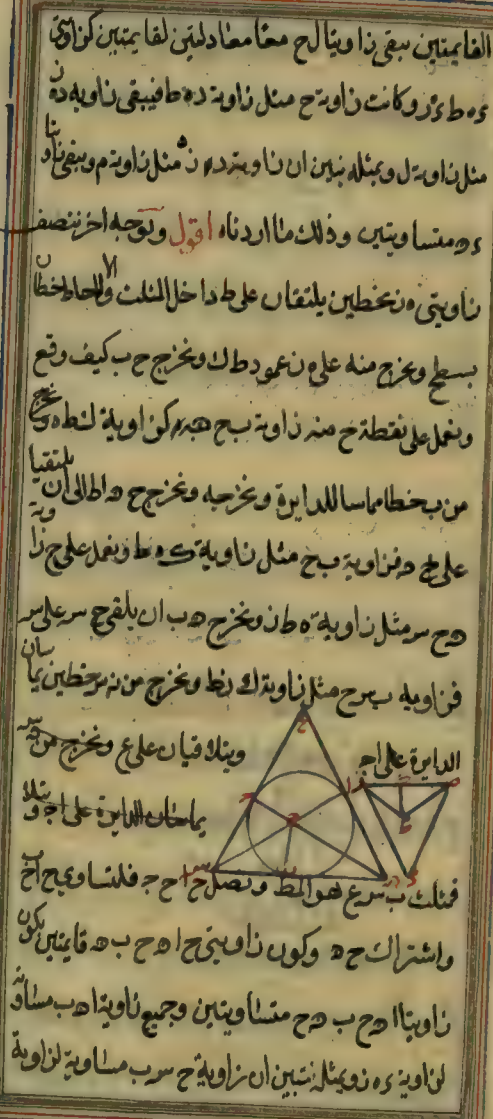 القايمتين يبقى زاويتا ل ح معا معادلتين لقايمتين كزاويتى
ء ه ط ء ز و كانت زاوية ح مثل زاوية ده ط فيبقى زاويه ده ن
مثل زاوية ل وبمثله نبين ان زاوية ده ز مثل زاوية م ويبقى زاويتا
ء ه متساويتين وذلك ما اردناه اقول وبوجه اخر ننصف
زاويتى ه ن بخطين يلتقيان على ط داخل المثلث والا لاحاط الخطان
بسطح ونخرج منه على ه ن عمود ط ك ونخرج ح ب كيف وقع
ونعمل على نقطة ح منه زاوية ب ح ه كزاوية ك ط ه ونخرج
من ب خطا مماسا للدايرة ونخرجه ونخرج ح ه الى ان يلتقيا
على ه فزاوية ب ح مثل زاوية ك ه ط ونعمل على ح زاوية
ه ح س مثل زاوية ه ط ن ونخرج ه ب ان يلقى ح س على س
فزاويه ب س ح مثل زاوية ك ن ط ونخرج من ه س خطين يماسان
الدايرة على ا ج
ويتلاقيان على ع
يماسان الدايرة على ا ج
فمثلث ه س ع هو المط ونصل ح ا ح ج فلتساوى ح ا ح ب
واشتراك ح ه وكون زاويتى ح ا ه ح ب ه قايمتين يكون
زاويتا ا ه ح ب ه ح متساويتين وجميع زاوية ا ه ب مساوية
لزاوية ء ه ن وبمثله نتبين ان زاوية ح س ب مساوية لزاوية